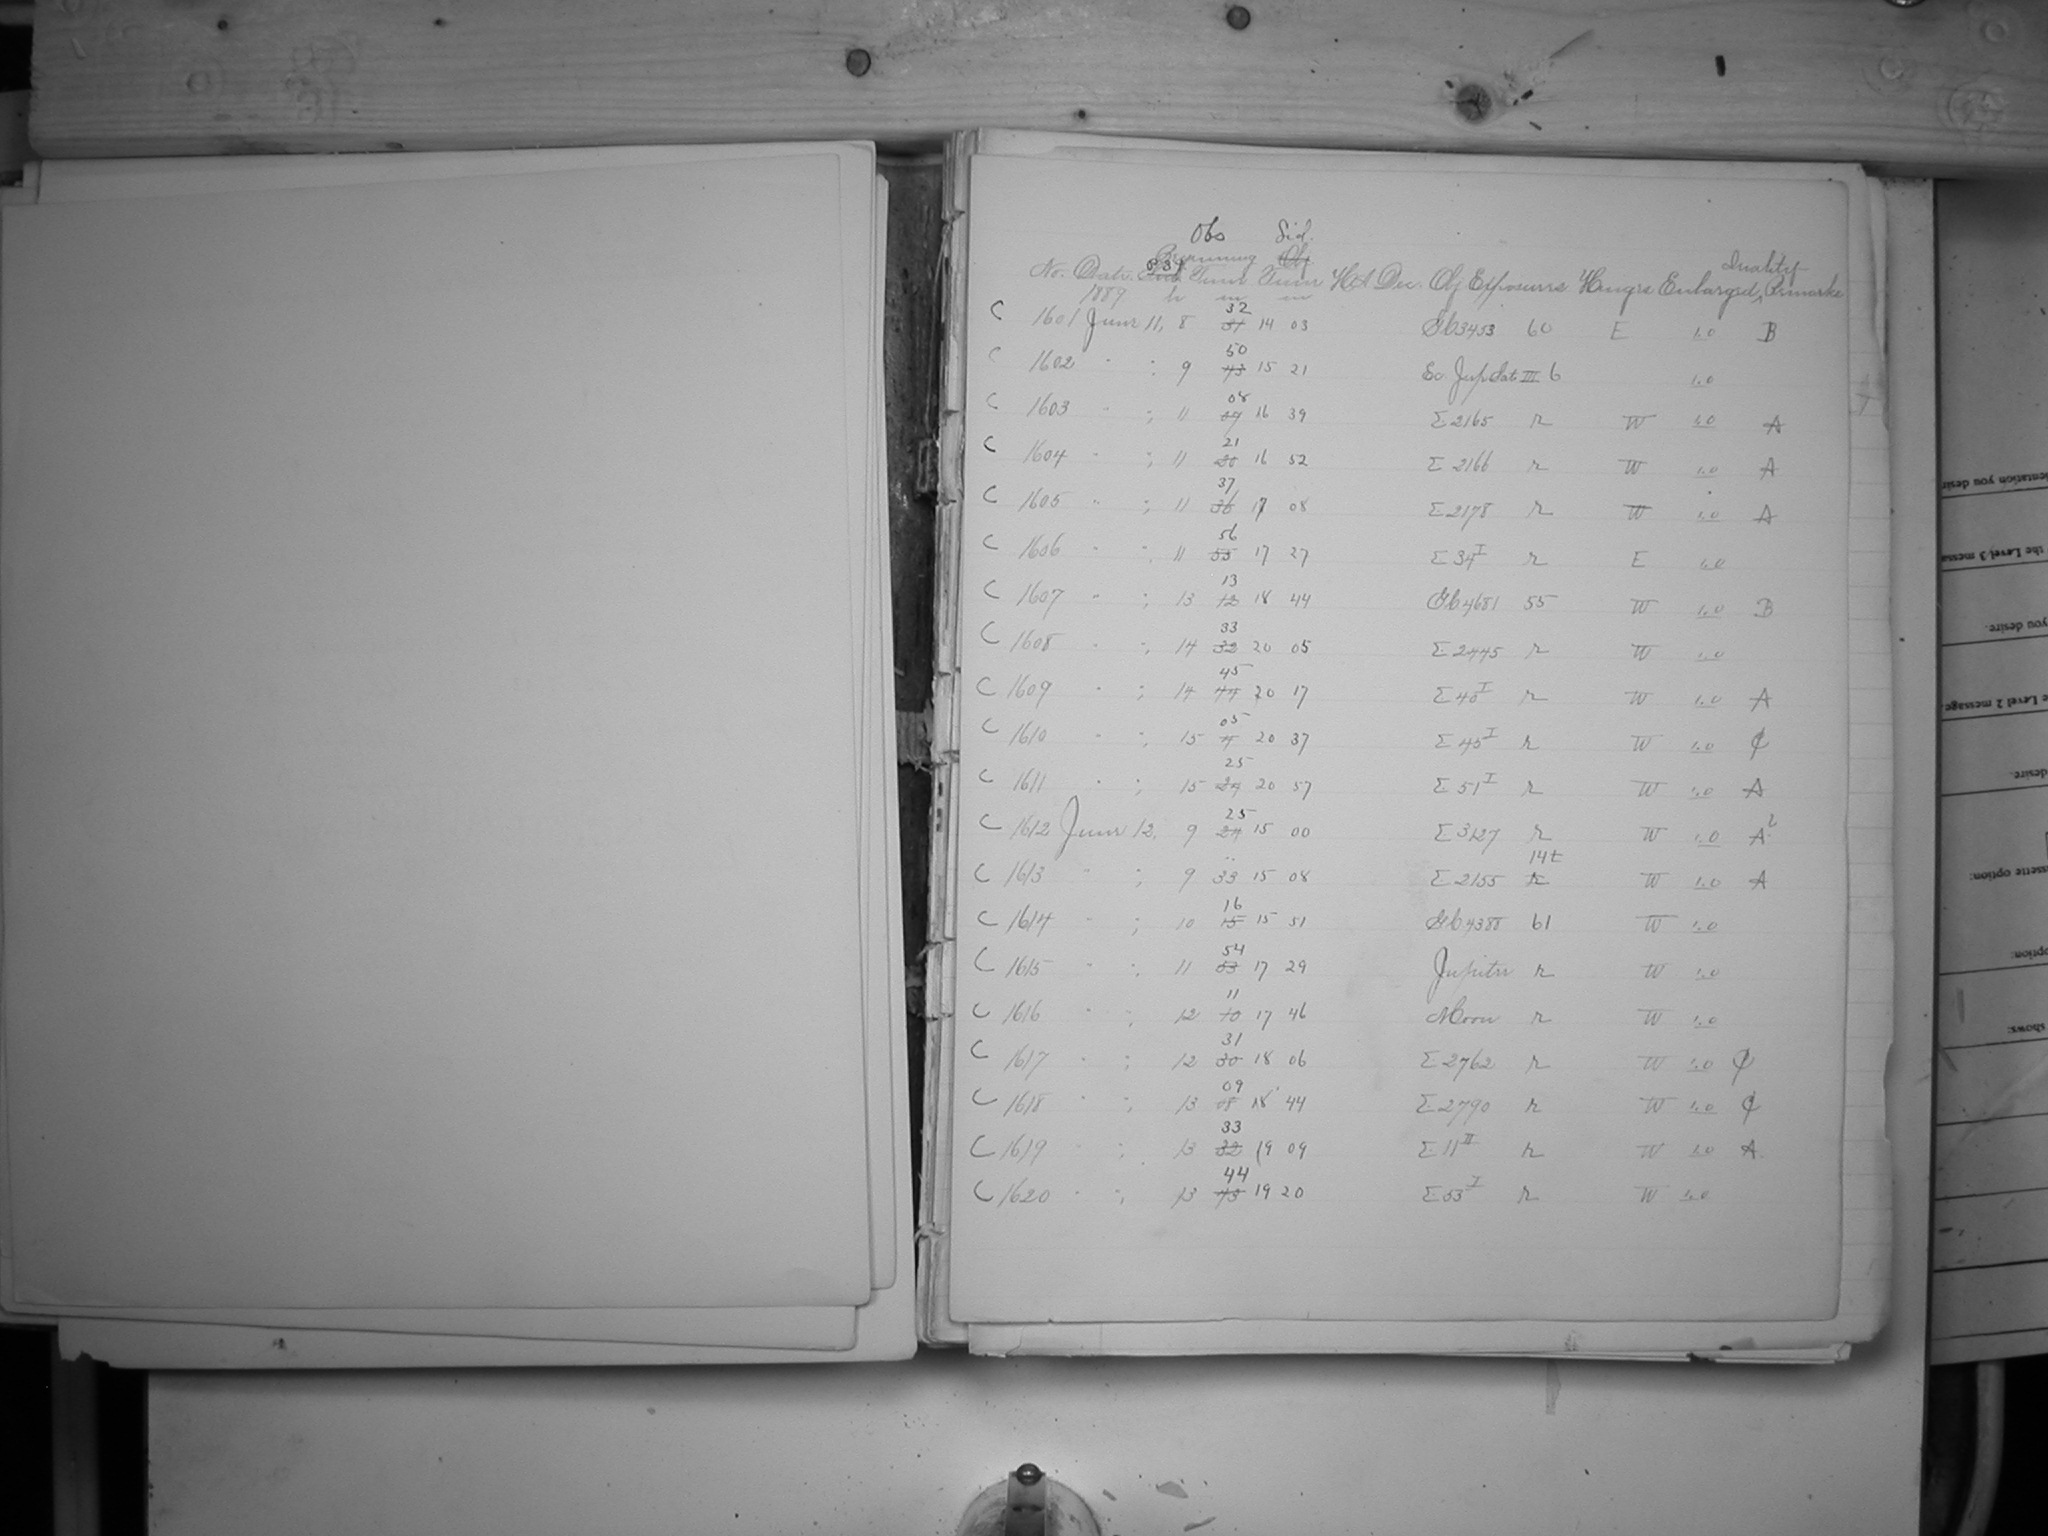 Obs Sid.
Beginning Obj
Quality
No. Date. P.31 Time Time H.A Dec. Obj Exposures Hinges Enlarged, Remarks
1889 h m m
32
C 1601 June 11, 8 31 14 03 Gb3453 60 E 1.0 B
50
C 1602 " ; 9 43 15 21 So. Jup Sat III 6 1.0
08
C 1603 " ; 11 07 16 39 Σ 2165 r W 1.0 A
21
C 1604 " ; 11 20 16 52 Σ 2166 r W 1.0 A
37
C 1605 " ; 11 36 17 08 Σ 2178 r W 1.0 A
56
C 1606 " ; 11 55 17 27 Σ 34 I r E 1.0
13
C 1607 " ; 13 12 18 44 Gb4681 55 W 1.0 B
33
C 1608 " ; 14 32 20 05 Σ 2445 r W 1.0
45
C 1609 " ; 14 44 20 17 Σ 40 I r W 1.0 A
05
C 1610 " ; 15 4 20 37 Σ 45 I r W 1.0 C
25
C 1611 " ; 15 24 20 57 Σ 51 I r W 1.0 A
25
C 1612 June 12, 9 24 15 00 Σ 3127 r W 1.0 A?
14t
C 1613 " ; 9 33 15 08 Σ 2155 r W 1.0 A
16
C 1614 " ; 10 15 15 51 Gb4388 61 W 1.0
54
C 1615 " ; 11 53 17 29 Jupiter r W 1.0
11
C 1616 " ; 12 10 17 46 Moon r W 1.0
31
C 1617 " ; 12 30 18 06 Σ 2762 r W 1.0 C
09
C 1618 " ; 13 08 18 44 Σ 2790 r W 1.0 C
33
C 1619 " ; 13 32 19 09 Σ 11 II r W 1.0 A
44
C 1620 " ; 13 43 19 20 Σ 53 I r W 1.0
entation you desir
the Level 3 messa
you desire.
e Level 2 message
desire.
ssette option:
option:
shows: